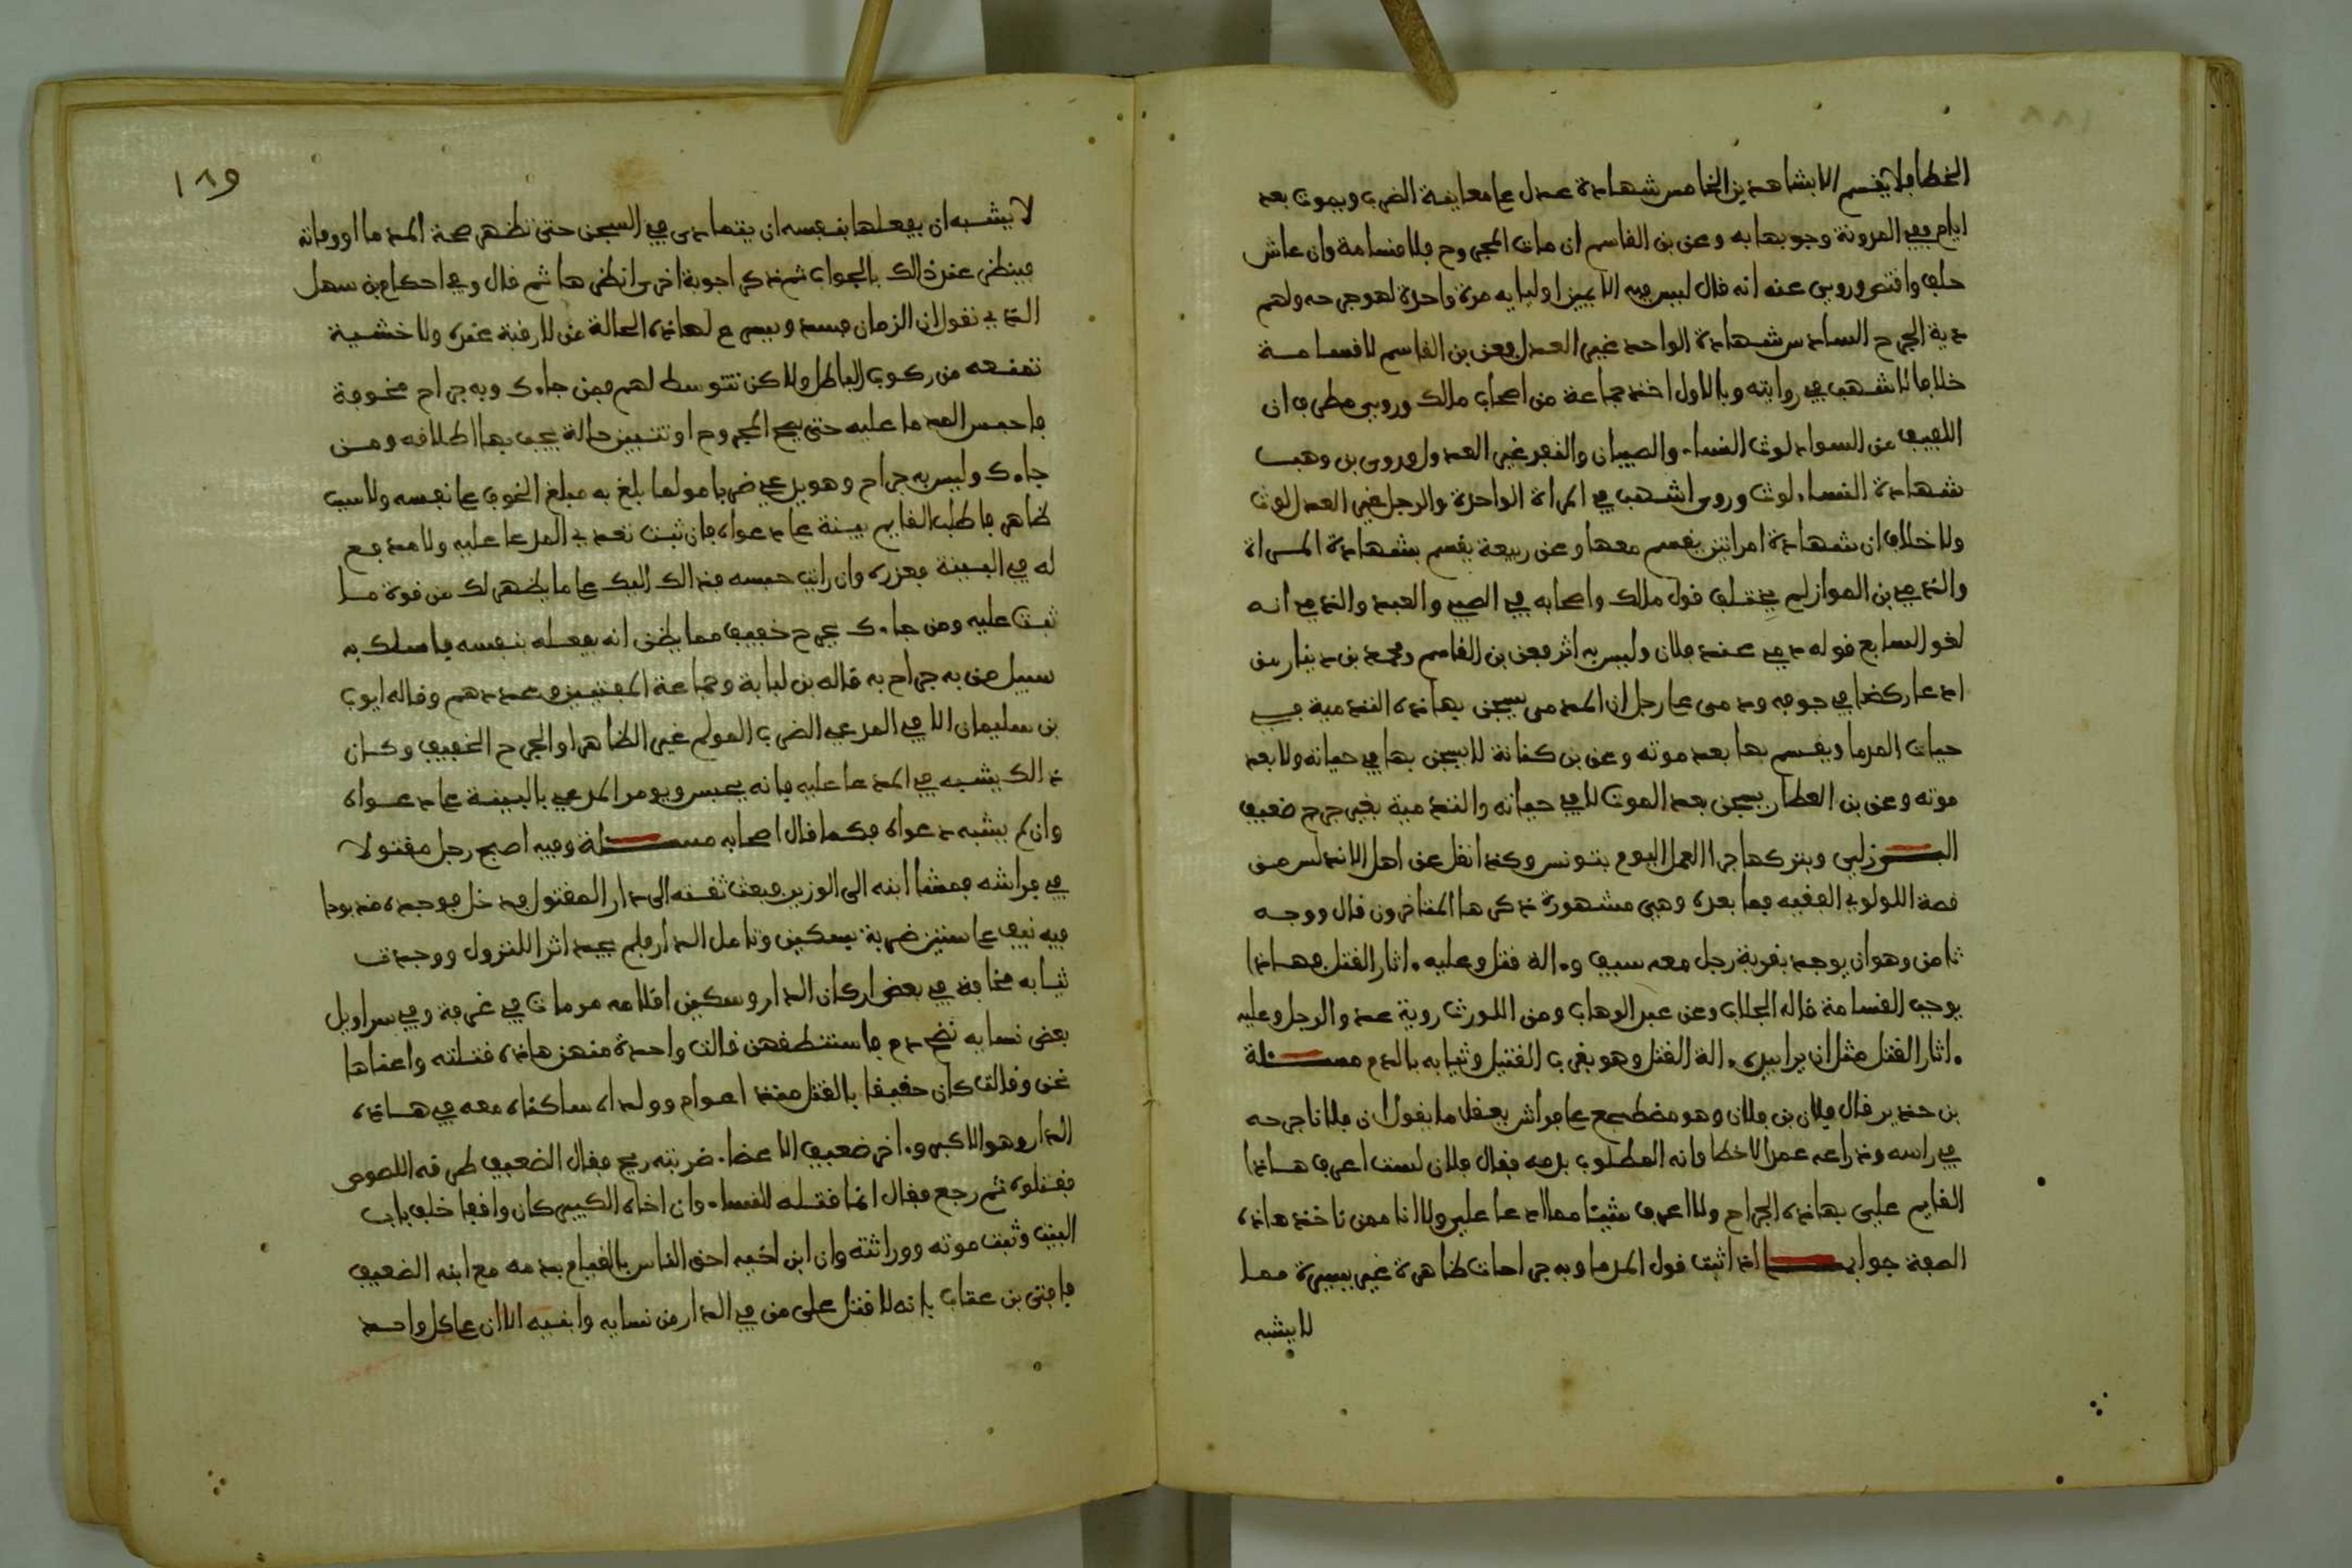 الخطا فلا يقسم الا بشاهدين الخامس شهادة عدل على معاينة الضرب ويموت بعد
ايام ففي المدونة وجوبها به وعن بن القاسم ان مات المجروح فلا قسامة وان عاش
حلف واقتص وروي عنه انه قال ليس فيه الا يمين اوليايه مرة واحدة لهو جرحه ولهم
دية الجرح السادس شهادة الواحد غير العدل فعن بن القاسم لا قسامة
خلافا لاشهب في روايته وبالاول اخذ جماعة من اصحاب مالك وروي مطرف ان
اللفيف من السواد لوث النساء والصبيان والنفر غير العدول وروى بن وهب
شهادة النساء لوث وروى اشهب في المراة الواحدة والرجل غير العدل لوث
ولا خلاف ان شهادة امراتين يقسم معها وعن ربيعة يقسم بشهادة المراة
والذي في بن المواز لم يختلف قول مالك واصحابه في الصبي والعبد والذمي انه
لغو السابع قوله دمي عند فلان وليس به اثر فعن بن القاسم ومحمد بن دينار من
ادعا ركضا في جوفه ودمى على رجل ان المدمى يسجن بهاذه التدمية في
حيات المدما ويقسم بها بعد موته وعن بن كنانة لا يسجن بها في حياته ولا بعد
موته وعن بن العطار يسجن بعد الموت لا في حياته والتدمية بغير جرح ضعيف
البرزلي وبتركها جرا العمل اليوم بتونس وكذا نقل عن اهل الاندلس من
قصة اللولوي الفقيه فما بعده وهي مشهورة ذكرها المتاخرون قال ووجه
ثامن وهو ان يوجد بقربه رجل معه سيف وءالة قتل وعليه ءاثار القتل فهاذا
يوجب القسامة قاله الجلاب وعن عبد الوهاب ومن اللوث روية عدو الرجل وعليه
ءاثار القتل مثل ان يرا بيده ءالة القتل وهو بقرب القتيل وثيابه بالدم مسئلة
بن حدير قال فلان بن فلان وهو مضطجع على فراش يعقل ما يقول ان فلانا جرحه
في راسه وذراعه عمدا لا خطا وانه المطلوب بدمه فقال فلان لست اعرف هاذا
القايم علي بهاذه الجراح ولا اعرف شيئا مما ادعا علي ولا انا ممن ناخذ هاذه
الصفة جوابها اذا ثبت قول المدما وبه جراحات ظاهرة غير يسيرة مما
لا يشبه
١٨٩
لا يشبه ان يفعلها بنفسه ان يتمادى في السجن حتى تظهر صحة المدما او وفاته
فينظر عند ذالك بالجواب ثم ذكر اجوبة اخرى انظرها ثم قال وفي احكام بن سهل
الذي نقول ان الزمان فسد ويسرع لهاذه الحالة من لا رقبة عنده ولا خشية
تمنعه من ركوب الباطل ولاكن نتوسط لهم فمن جاءك وبه جراح مخوفة
فاحبس المدما عليه حتى يصح المجروح او تتبين حالة يجب بها اطلاقه ومن
جاءك وليس به جراح وهو يدعي ضربا مولما بلغ به مبلغ الخوف على نفسه ولا سبب
ظاهر فاطلب القايم ببينة على دعواه فان ثبت تعدي المدعا عليه ولا مدفع
له في البينة فعزره وان رايت حبسه فذالك اليك على ما يظهر لك من قوة ما
ثبت عليه ومن جاءك بجرح خفيف مما يظن انه يفعله بنفسه فاسلك به
سبيل من به جراح به قاله بن لبابة وجماعة المفتيين وعددهم وقاله ايوب
بن سليمان الا في المدعي الضرب المولم غير الظاهر او الجرح الخفيف وكان
ذالك يشبه في المدعا عليه فانه يحبس ويومر المدعي بالبينة على دعواه
وان لم يشبه دعواه فكما قال اصحابه مسئلة وفيه اصبح رجل مقتولا
في فراشه فمشا ابنه الى الوزير فبعث ثقته الى دار المقتول فدخل فوجده مذبوحا
فيه نيف على ستين ضربة بسكين وتامل الدار فلم يجد اثرا للنزول ووجدت
ثيابه مخافة في بعض اركان الدار وسكين اقلامه مرمات في غرفة وفي سراويل
بعض نسايه نضح دم فاستنطقهن فقالت واحدة منهن هاذه قتلته واعناها
نحن وقالت كان حقيقا بالقتل منذ اعوام وولداه ساكناه معه في هاذه
الدار وهو الاكبر وءاخر ضعيف الاعضاء ضربته ريح فقال الضعيف طرقه اللصوص
فقتلوه ثم رجع فقال انما قتله النساء وان اخاه الكبير كان واقفا خلف باب
البيت وثبت موته ووراثته وان ابن اخيه احق الناس بالقيام بدمه مع ابنه الضعيف
فافتى بن عتاب بانه لا قتل على من في الدار من نسايه وابنيه الا ان على كل واحد